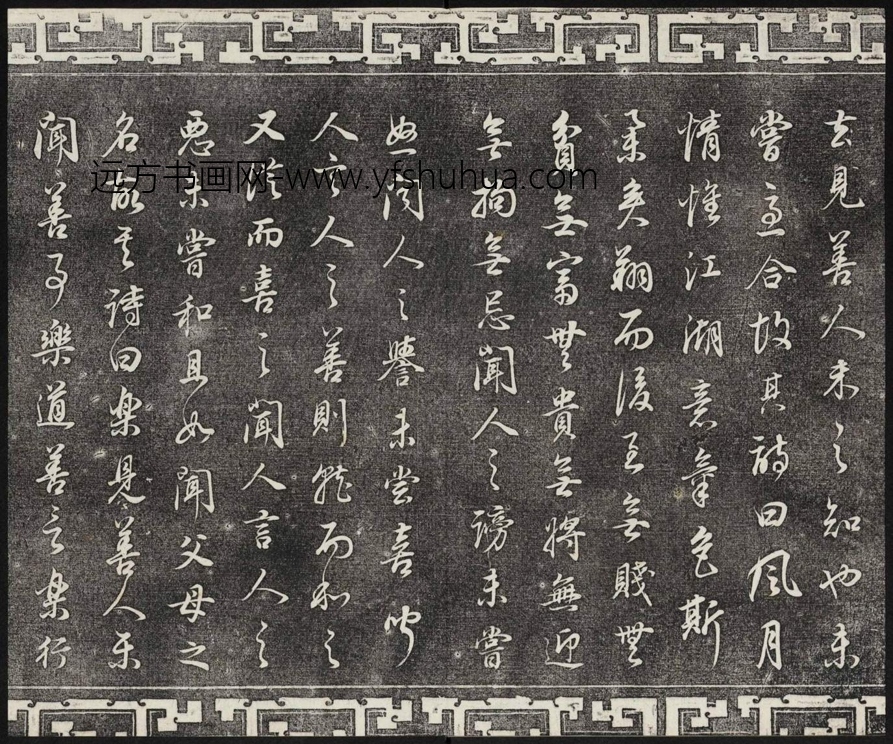 去見善人未之知也未
嘗急合故其詩曰風月
情懷江湖意氣色斯
舉矣翔而後至無賤無
貧無富無貴無將無迎
無拘無忌聞人之謗未嘗
怒聞人之譽未嘗喜聞
人言人之善則就而和之
又從而喜之聞人言人之
惡未嘗和且如聞父母之
名故其詩曰樂見善人樂
聞善事樂道善言樂行
远方书画网-www.yfshuhua.com